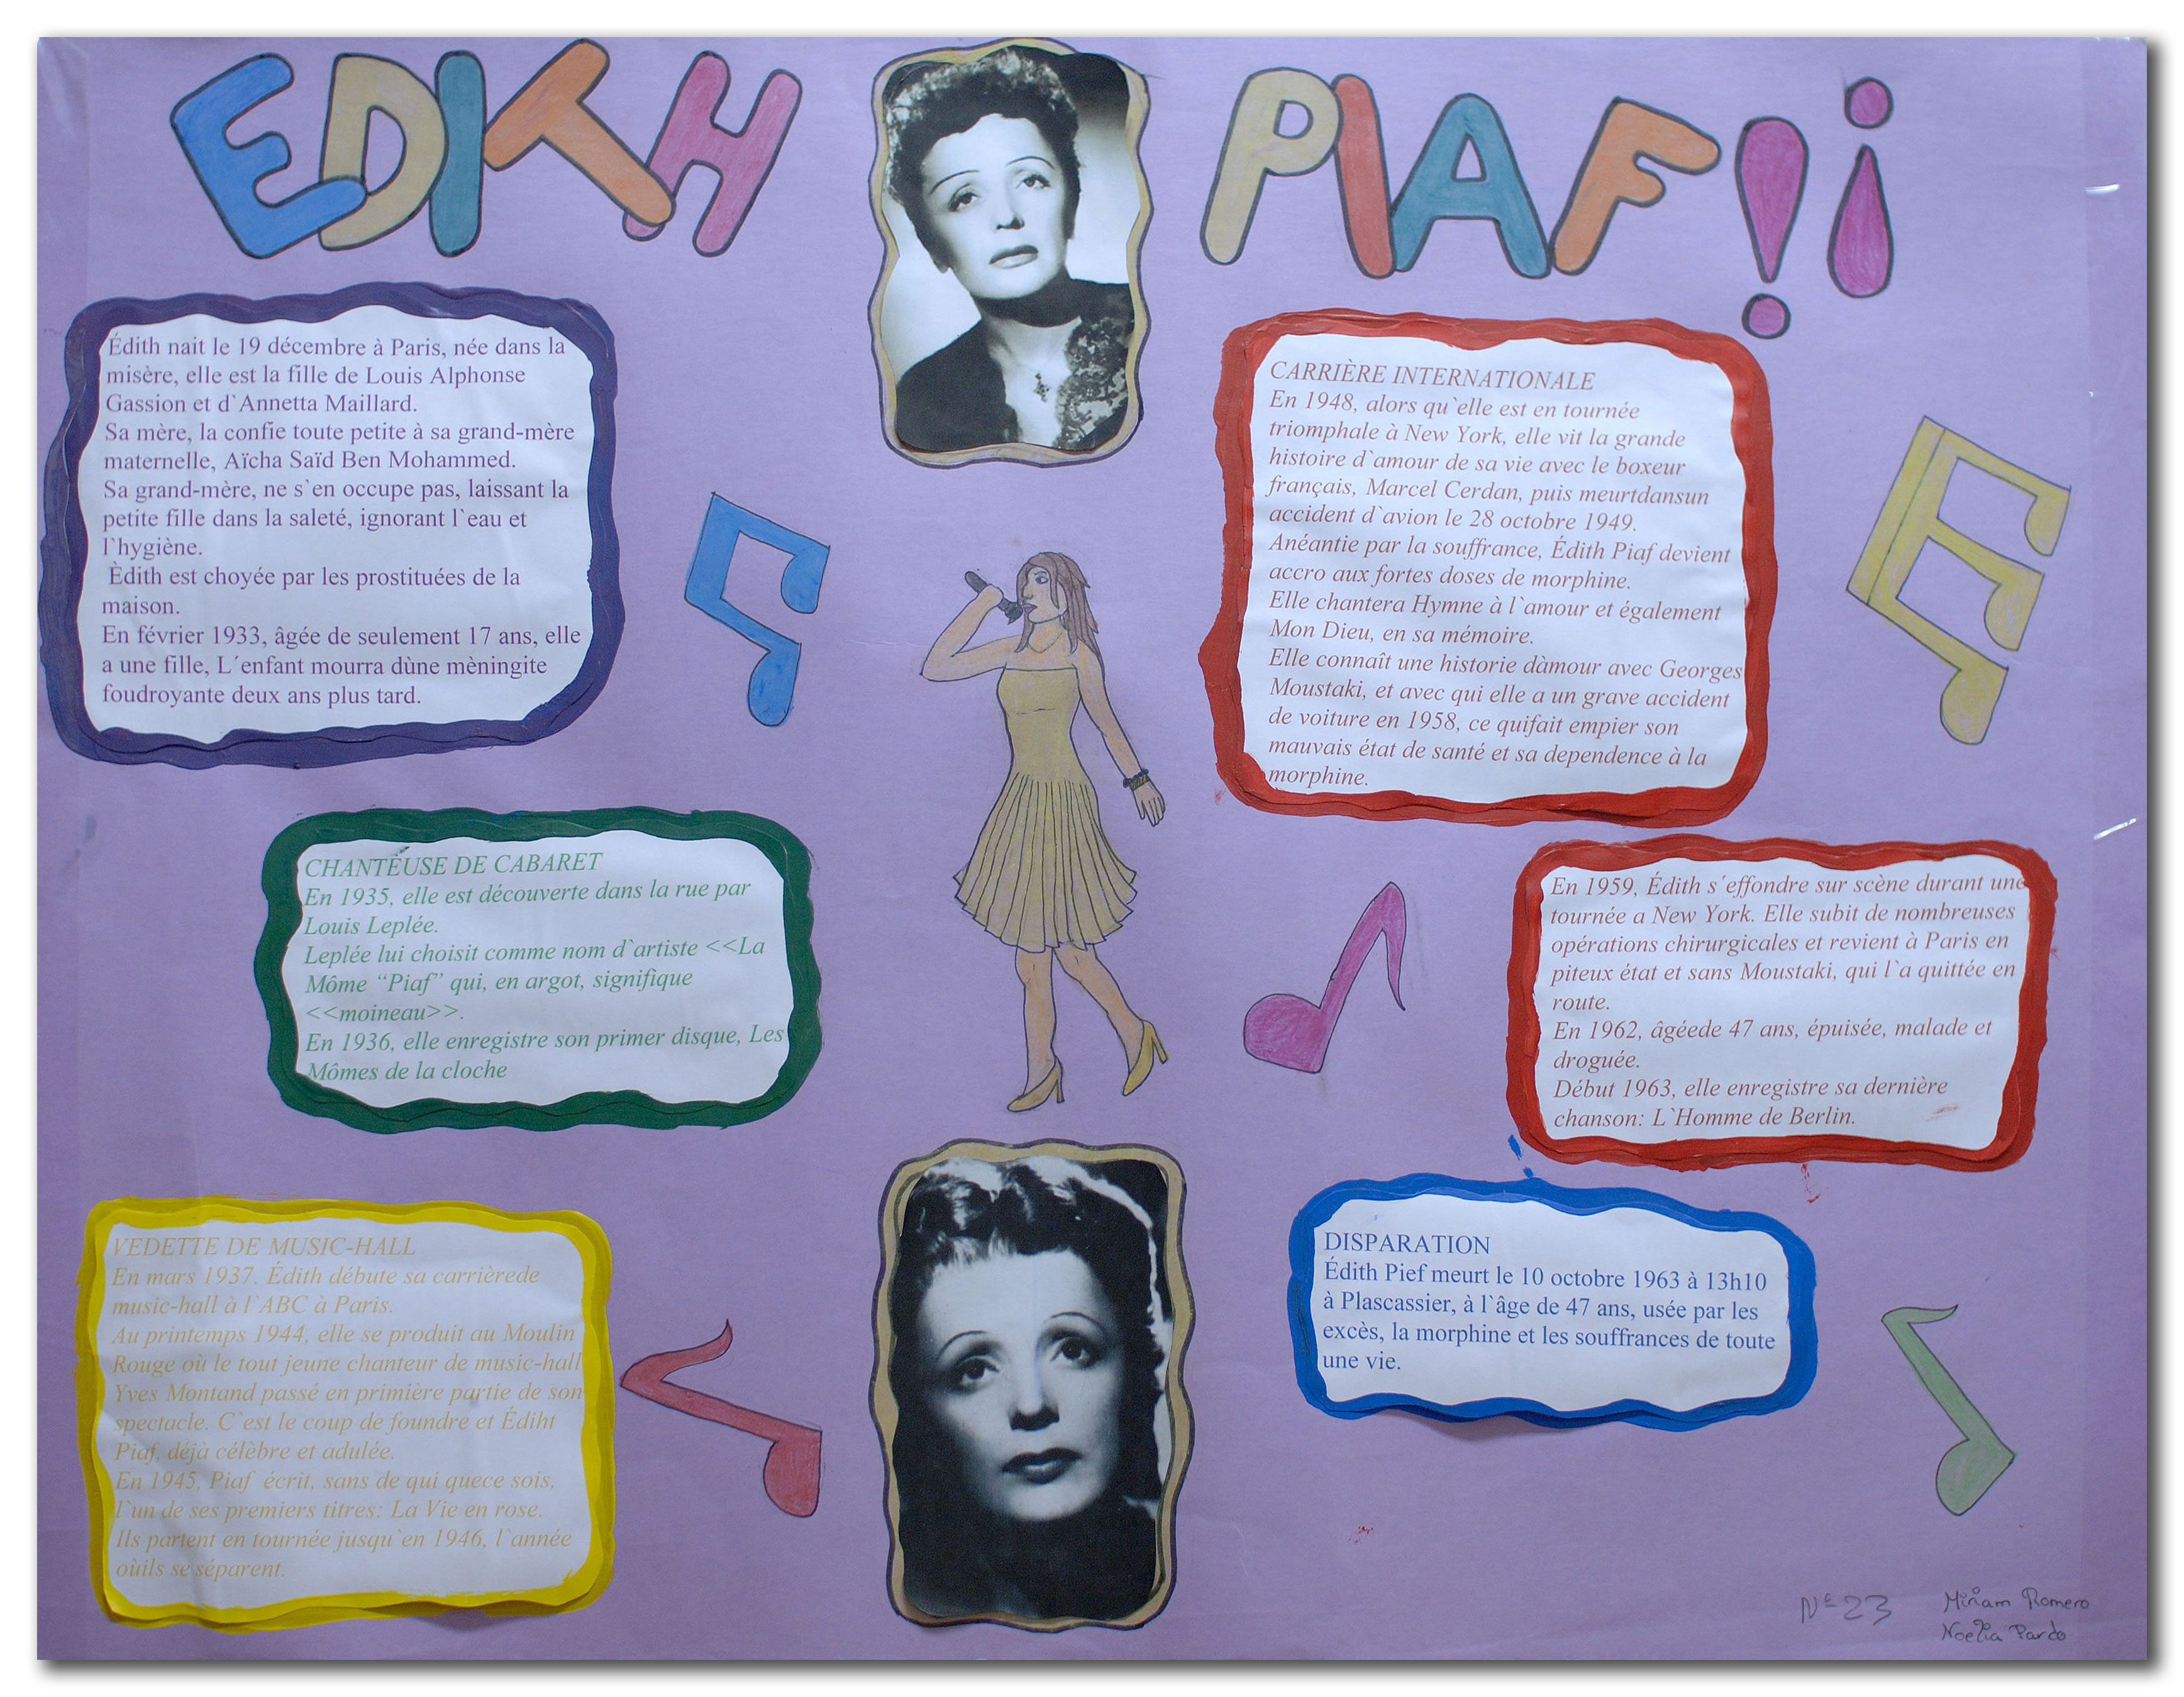 EDITH PIAF!¡
Édith nait le 19 décembre à Paris, née dans la
misère, elle est la fille de Louis Alphonse
Gassion et d`Annetta Maillard.
Sa mère, la confie toute petite à sa grand-mère
maternelle, Aïcha Saïd Ben Mohammed.
Sa grand-mère, ne s`en occupe pas, laissant la
petite fille dans la saleté, ignorant l`eau et
l`hygiène.
Èdith est choyée par les prostituées de la
maison.
En février 1933, âgée de seulement 17 ans, elle
a une fille, L´enfant mourra dùne mèningite
foudroyante deux ans plus tard.
CHANTEUSE DE CABARET
En 1935, elle est découverte dans la rue par
Louis Leplée.
Leplée lui choisit comme nom d`artiste <<La
Môme “Piaf” qui, en argot, signifique
<<moineau>>.
En 1936, elle enregistre son primer disque, Les
Mômes de la cloche
VEDETTE DE MUSIC-HALL
En mars 1937. Édith débute sa carrièrede
music-hall à l`ABC à Paris.
Au printemps 1944, elle se produit au Moulin
Rouge où le tout jeune chanteur de music-hall
Yves Montand passé en primière partie de son
spectacle. C`est le coup de foundre et Édiht
Piaf, déjà célèbre et adulée.
En 1945, Piaf écrit, sans de qui quece sois,
l`un de ses premiers titres: La Vie en rose.
Ils partent en tournée jusqu`en 1946, l`année
oùils se séparent.
CARRIÈRE INTERNATIONALE
En 1948, alors qu`elle est en tournée
triomphale à New York, elle vit la grande
histoire d`amour de sa vie avec le boxeur
français, Marcel Cerdan, puis meurtdansun
accident d`avion le 28 octobre 1949.
Anéantie par la souffrance, Édith Piaf devient
accro aux fortes doses de morphine.
Elle chantera Hymne à l`amour et également
Mon Dieu, en sa mémoire.
Elle connaît une historie dàmour avec Georges
Moustaki, et avec qui elle a un grave accident
de voiture en 1958, ce quifait empier son
mauvais état de santé et sa dependence à la
morphine.
En 1959, Édith s´effondre sur scène durant une
tournée a New York. Elle subit de nombreuses
opérations chirurgicales et revient à Paris en
piteux état et sans Moustaki, qui l`a quittée en
route.
En 1962, âgéede 47 ans, épuisée, malade et
droguée.
Début 1963, elle enregistre sa dernière
chanson: L`Homme de Berlin.
DISPARATION
Édith Pief meurt le 10 octobre 1963 à 13h10
à Plascassier, à l`âge de 47 ans, usée par les
excès, la morphine et les souffrances de toute
une vie.
Nº 23
Miriam Romero
Noelia Pardo